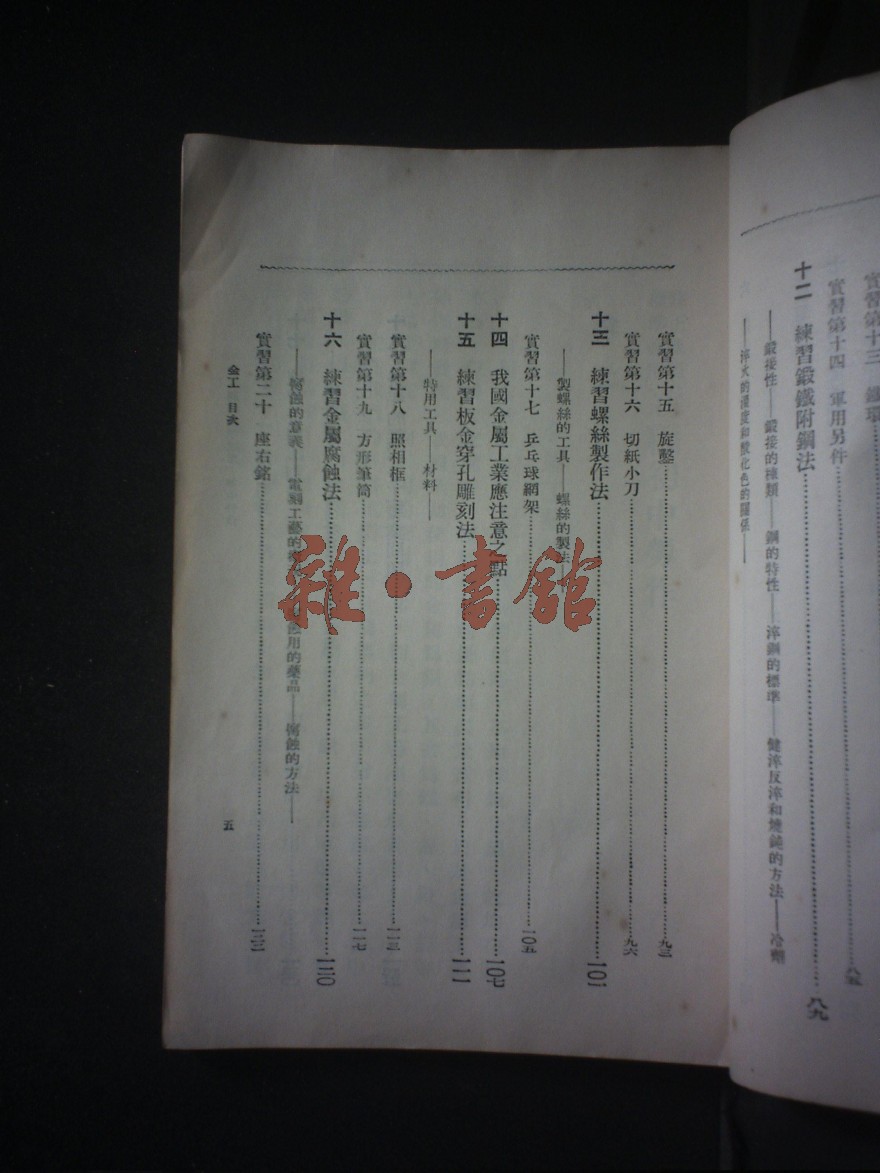 實習第十三 鐵環
實習第十四 軍用另件 八五
十二 練習鍛鐵附鋼法 八九
——鍛接性——鍛接的種類——鋼的特性——淬鋼的標準——健淬反淬和燒鈍的方法——冷劑
——淬火的溫度和酸化色的關係——
實習第十五 旋鑿 九三
實習第十六 切紙小刀 九六
十三 練習螺絲製作法 一〇一
——製螺絲的工具——螺絲的製法——
實習第十七 乒乓球網架 一〇五
十四 我國金屬工業應注意之點 一〇七
十五 練習板金穿孔雕刻法 一一一
——特用工具——材料——
實習第十八 照相框 一一三
實習第十九 方形筆筒 一一七
十六 練習金屬腐蝕法 一二〇
——腐蝕的意義——電刻工藝的 蝕用的藥品——腐蝕的方法——
實習第二十 座右銘 一二二
金工 目次 五
雜·書館